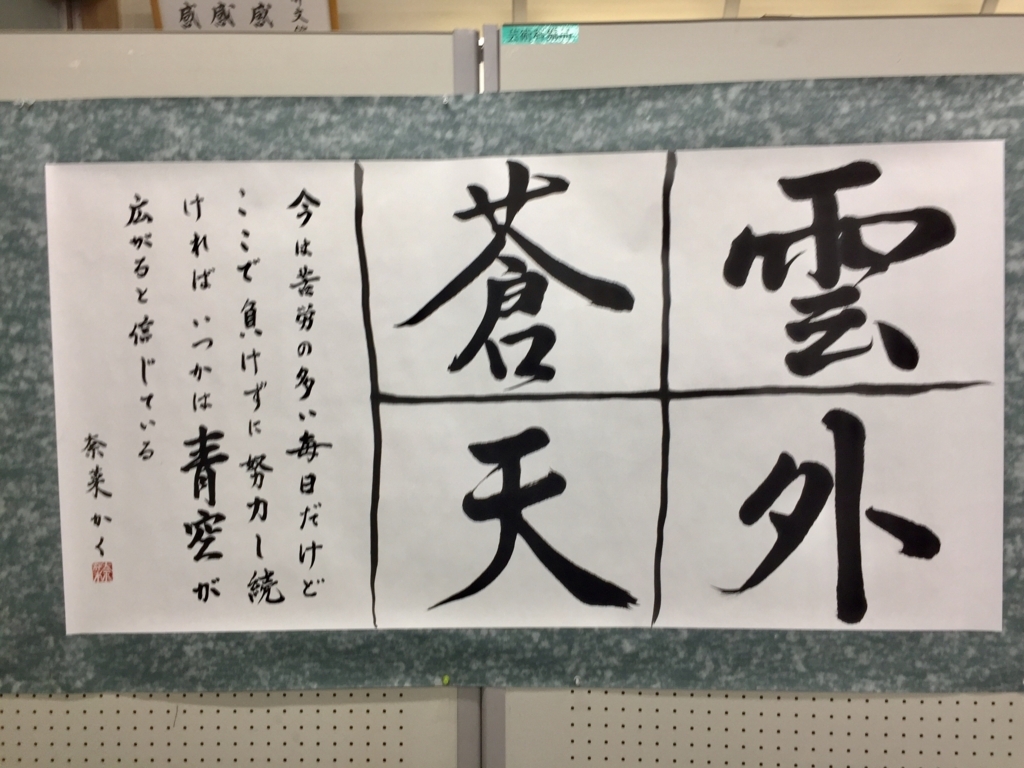 雲外
蒼天
今は苦労の多い毎日だけど
ここで負けずに努力し続
ければいつかは青空が
広がると信じている
奈菜かく
感感感